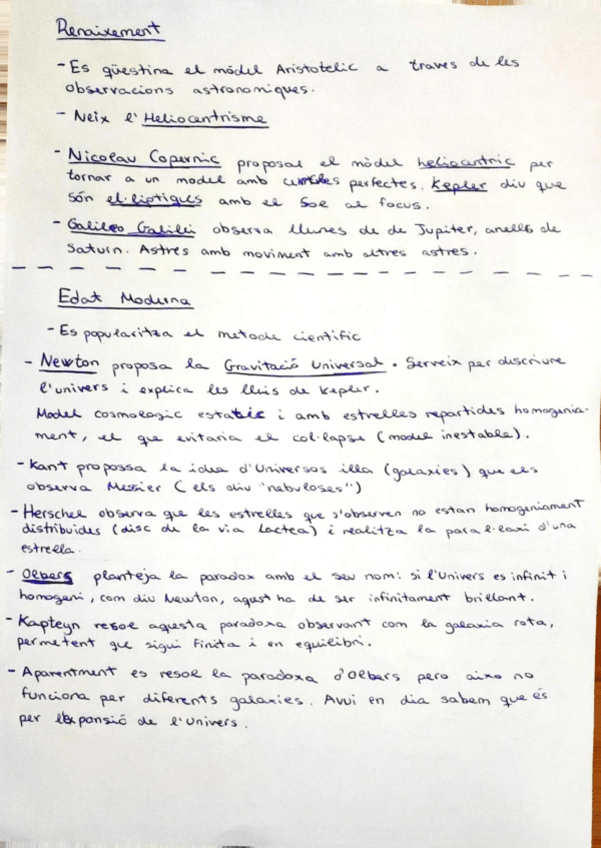 Renaixement
- Es qüestina el mòdel Aristotelic a traves de les
observacions astronomiques.
- Neix l'Heliocentrisme
- Nicolau Copernic proposar el mòdel heliocentric per
tornar a un model amb cercles perfectes. Kepler diu que
són el·liptiques amb el Sol al focus.
- Galileo Galilei observa llunes de de Jupiter, anells de
Saturn. Astres amb moviment amb altres astres.
Edat Moderna
- Es popularitza el metode cientific
- Newton proposa la Gravitació Universal. Serveix per discriure
l'univers i explica les lleis de Kepler.
Model cosmologic estatic i amb estrelles repartides homogenia-
ment, el que evitaria el col·lapse (model inestable).
- Kant propossa la idea d'Universos illa (galaxies) que els
observa Messier (els diu "nebuloses")
- Herschel observa que les estrelles que s'observen no estan homogeniament
distribuides (disc de la via lactea) i realitza la paral·laxi d'una
estrella.
- Olbers planteja la paradox amb el seu nom: si l'Univers es infinit i
homogeni, com diu Newton, aquest ha de ser infinitament brillant.
- Kapteyn resol aquesta paradoxa observant com la galaxia rota,
permetent que sigui finita i en equilibri.
- Aparentment es resol la paradoxa d'Olbers pero aixo no
funciona per diferents galaxies. Avui en dia sabem que és
per l'expansió de l'Univers.